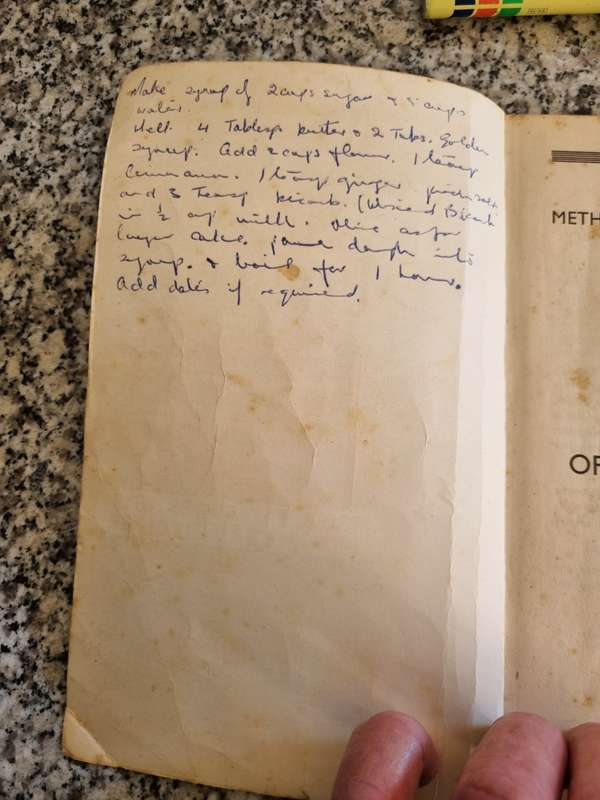 Make syrup of 2 cups sugar + 5 cups
water.
Melt 4 Tablesp butter & 2 Tabs. Golden
syrup. Add 2 cups flour. 1 teasp
Cinnamon. 1 teasp ginger
and 3 Teasp bicarb. (
in ½ cup milk. Mix as for
cake. dough into
syrup. & boil for 1 hour.
Add dates if required.
METH
OF